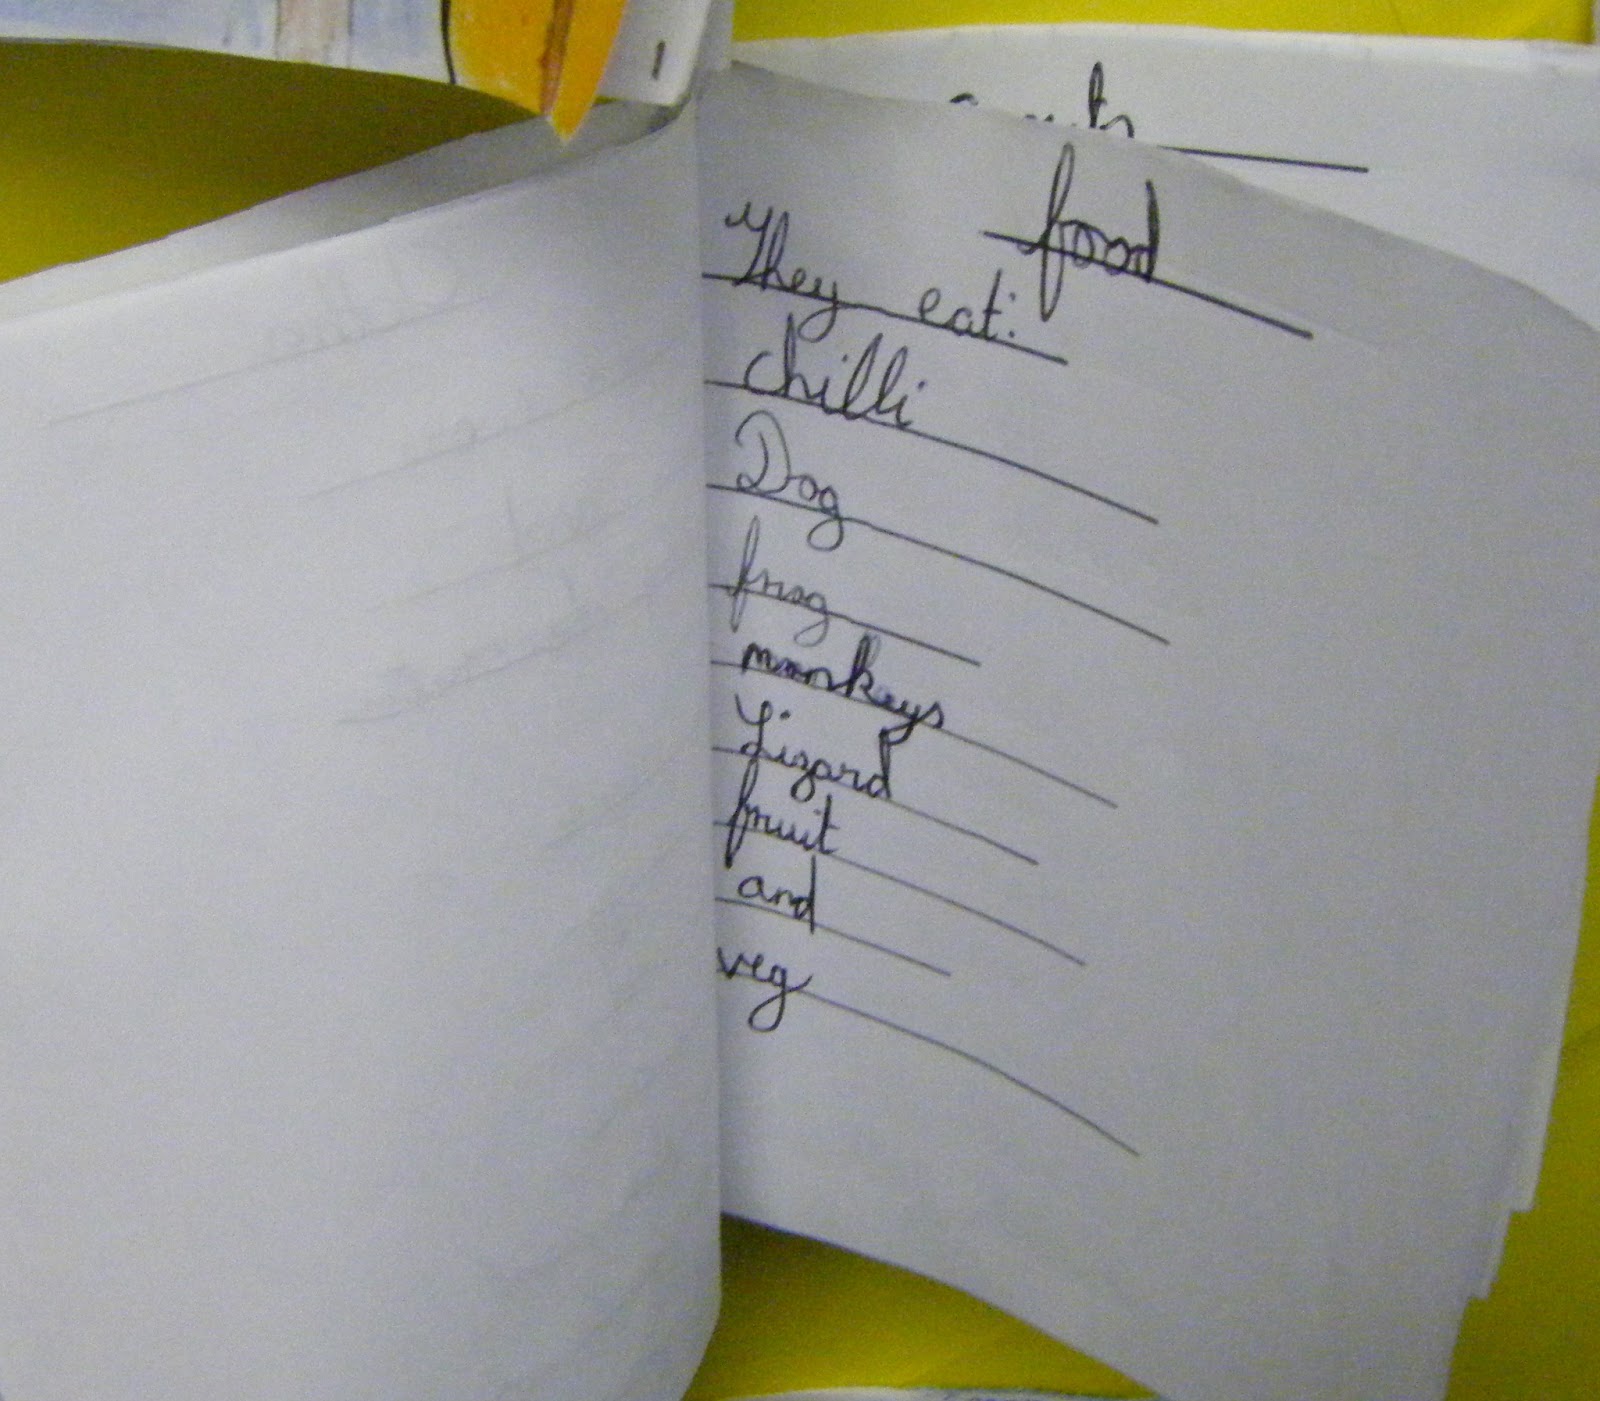 food
They eat:
chilli
Dog
frog
monkeys
Lizard
fruit
and
veg